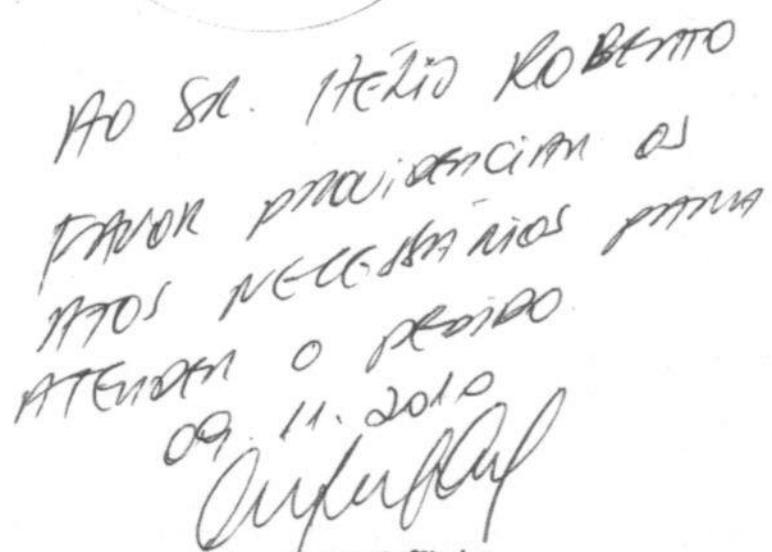 AO SR. HÉLIO ROBERTO
FAVOR PROVIDENCIAR OS
ATOS NECESSÁRIOS PARA
ATENDER O PEDIDO
09.11.2010